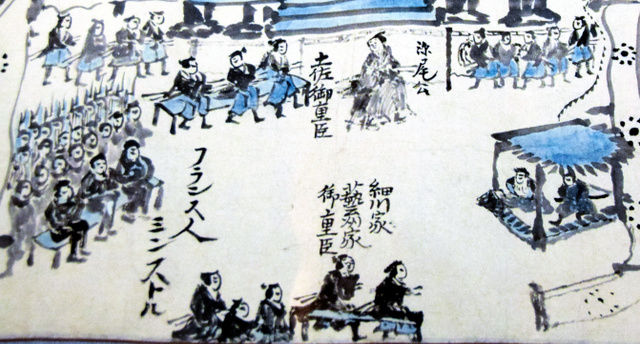 深尾公
土佐御重臣
細川家
藝州家
御重臣
フランス人
ミンストル